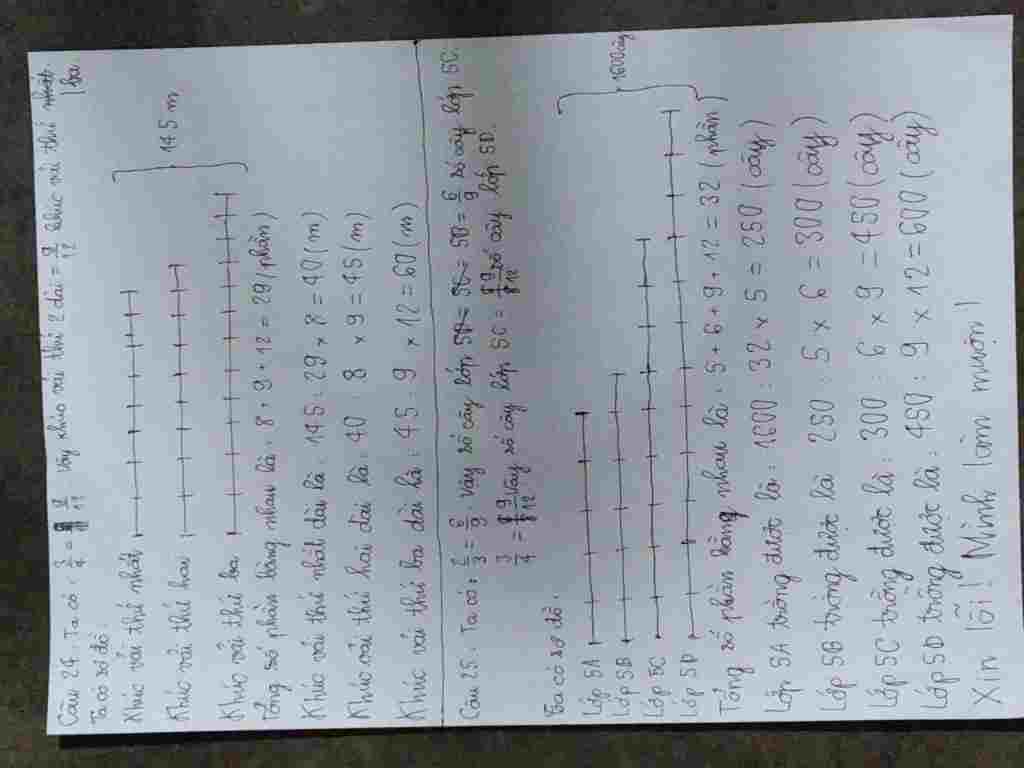 Câu 24. Ta có: 3/4 = 9/12 Vậy khúc vải thứ 2 dài = 9/12 khúc vải thứ ba.
Ta có sơ đồ:
Khúc vải thứ nhất
Khúc vải thứ hai
Khúc vải thứ ba
145 m
Tổng số phần bằng nhau là: 8 + 9 + 12 = 29 (phần)
Khúc vải thứ nhất dài là: 145 : 29 x 8 = 40 (m)
Khúc vải thứ hai dài là: 40 : 8 x 9 = 45 (m)
Khúc vải thứ ba dài là: 45 : 9 x 12 = 60 (m)
Câu 25. Ta có: 2/3 = 6/9. Vậy số cây lớp 5B = 6/9 số cây lớp 5C.
3/4 = 9/12 Vậy số cây lớp 5C = 9/12 số cây lớp 5D.
Ta có sơ đồ.
Lớp 5A
Lớp 5B
Lớp 5C
Lớp 5D
1600 cây
Tổng số phần bằng nhau là: 5 + 6 + 9 + 12 = 32 (phần)
Lớp 5A trồng được là: 1600 : 32 x 5 = 250 (cây)
Lớp 5B trồng được là 250 : 5 x 6 = 300 (cây)
Lớp 5C trồng được là: 300 : 6 x 9 = 450 (cây)
Lớp 5D trồng được là: 450 : 9 x 12 = 600 (cây)
Xin lỗi! Mình làm muộn!